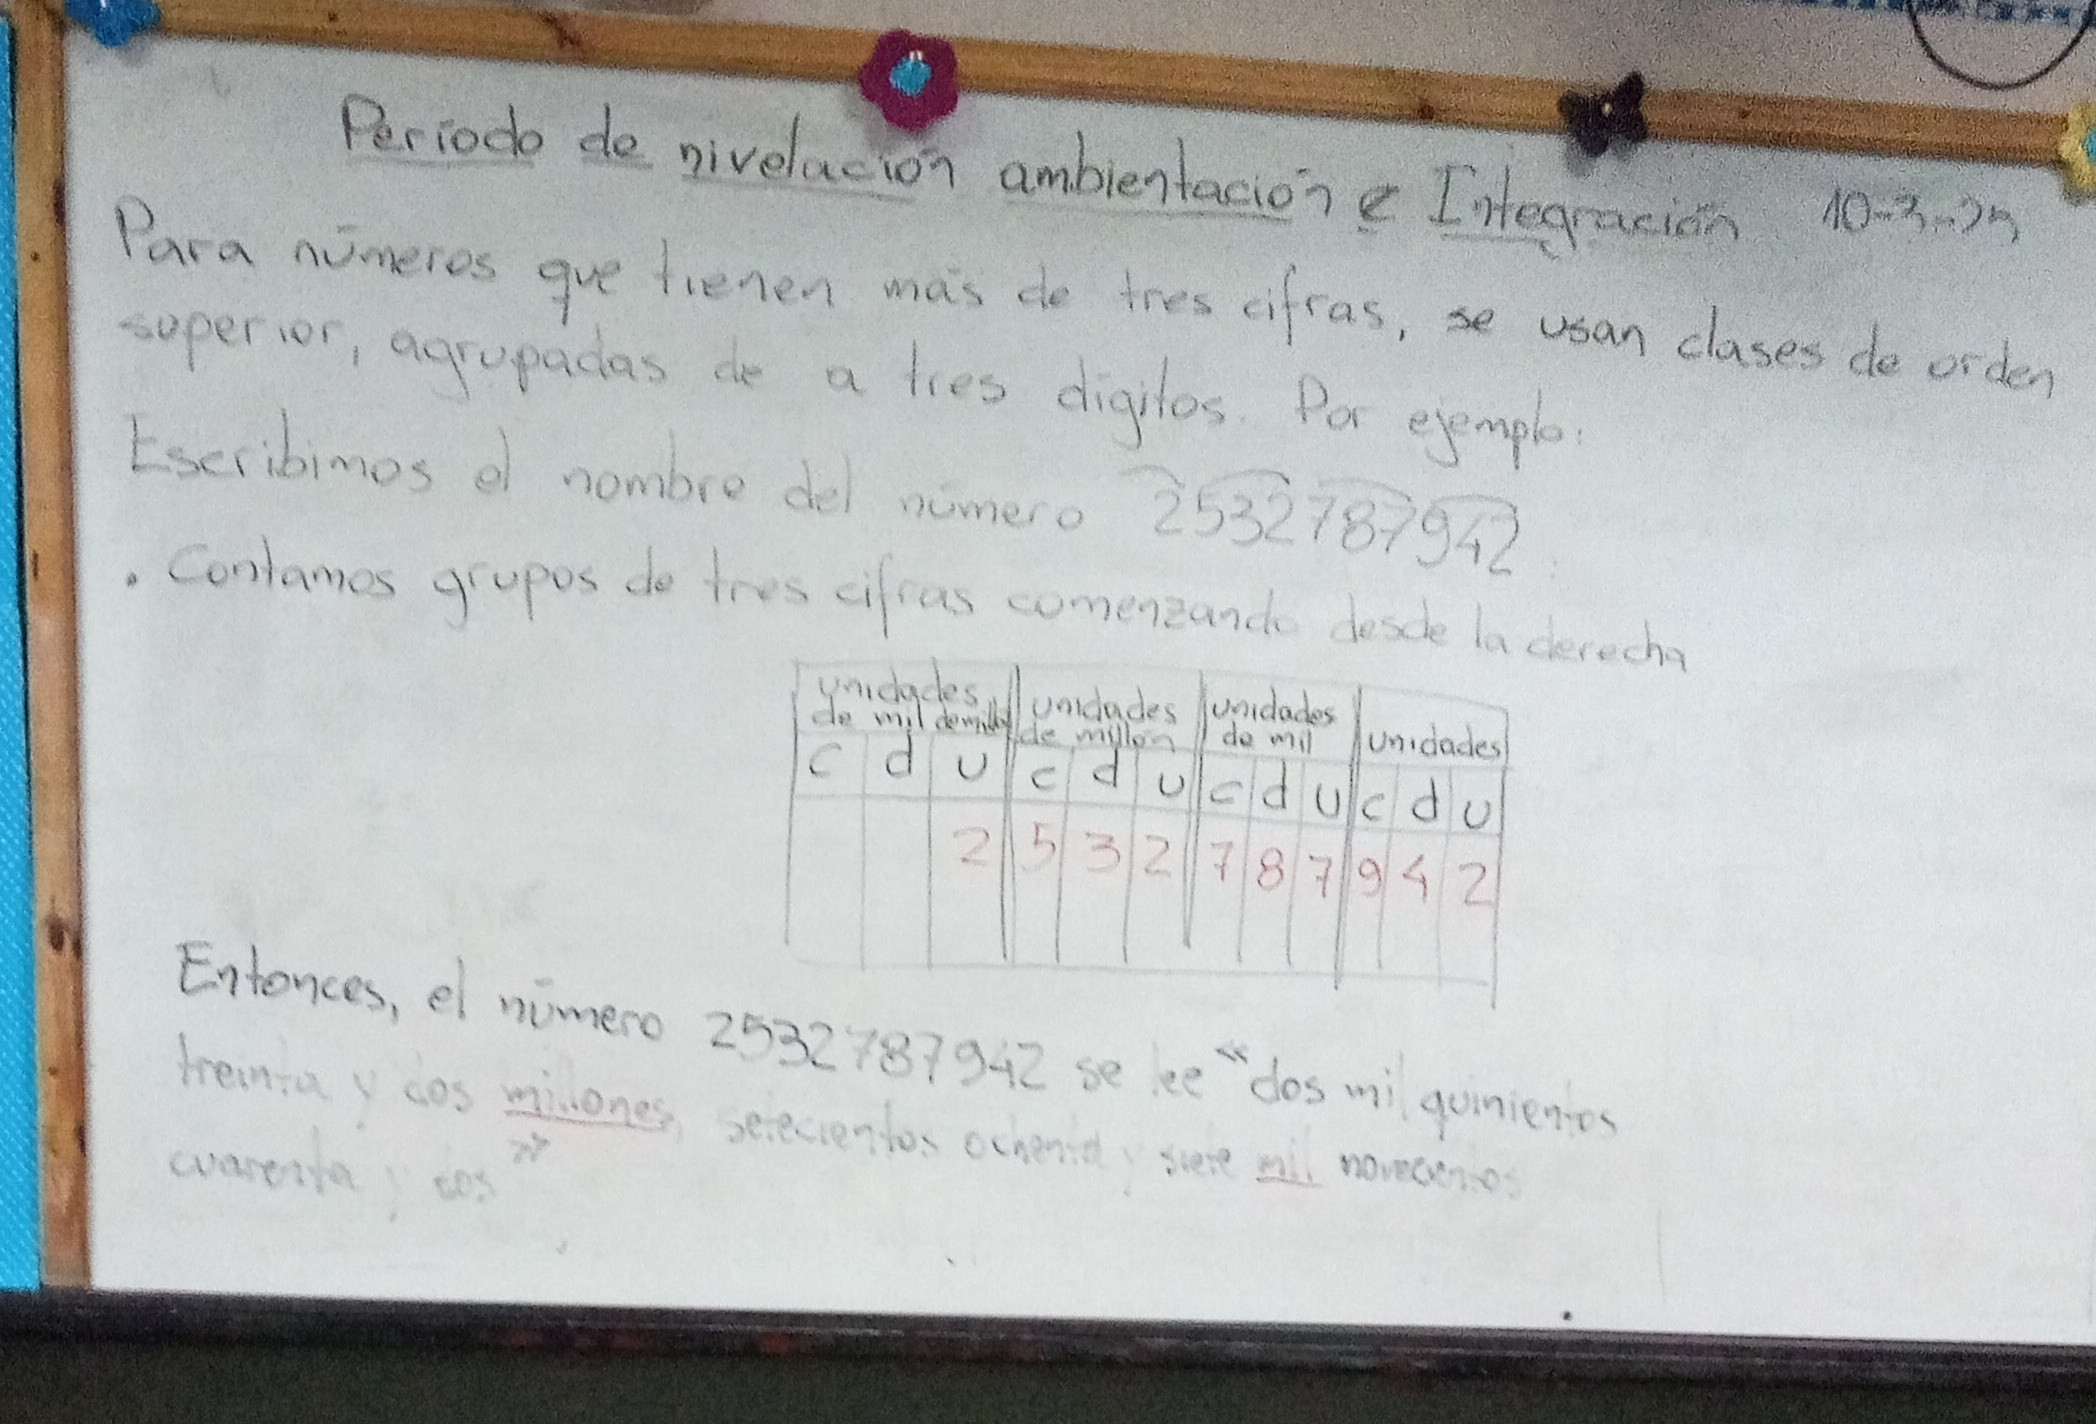 Periodo de nivelación ambientación e Integración 10-3-25
Para números que tienen más de tres cifras, se usan clases de orden
superior, agrupadas de a tres dígitos. Por ejemplo:
Escribimos el nombre del número 2532787942:
. Contamos grupos de tres cifras comenzando desde la derecha
unidades de mil de millón unidades de millón unidades de mil unidades
c d u c d u c d u c d u
2 5 3 2 7 8 7 9 4 2
Entonces, el número 2532787942 se lee "dos mil quinientos
treinta y dos millones, setecientos ochenta y siete mil novecientos
cuarenta y dos"